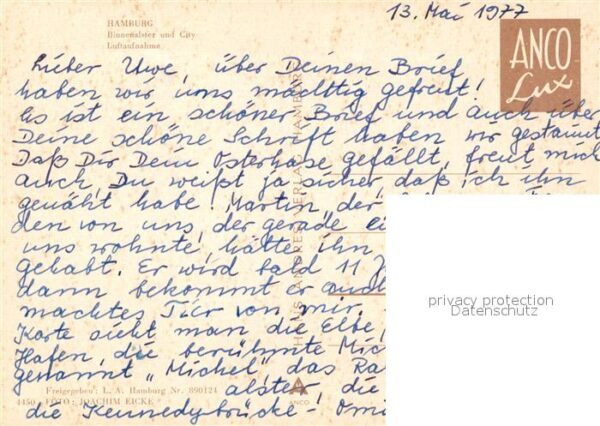 13. Mai 1977
HAMBURG
Binnenalster und City
Luftaufnahme
ANCO
Lux
Lieber Uwe, über Deinen Brief
haben wir uns mächtig gefreut!
Es ist ein schöner Brief und auch über
Deine schöne Schrift haben wir gestaunt
Daß Dir Dein Osterhase gefällt, freut mich
auch, Du weißt ja sicher, daß ich ihn
genäht habe. Martin, der
den von uns, der gerade ei
uns wohnte hätte ihn
gehabt. Er wird bald 11 J
dann bekommt er auch
machtes Tier von mir.
Karte sieht man die Elbe,
Hafen, die berühmte Mic
genannt "Michel" das Ra
alster! die
die Kennedybrücke! Omi
HANS ANDRES VERLAG HAMBURG
privacy protection
Datenschutz
Freigegeben: L. A. Hamburg Nr. 890124
4450 FOTO: JOACHIM EICKE
A
ANCO